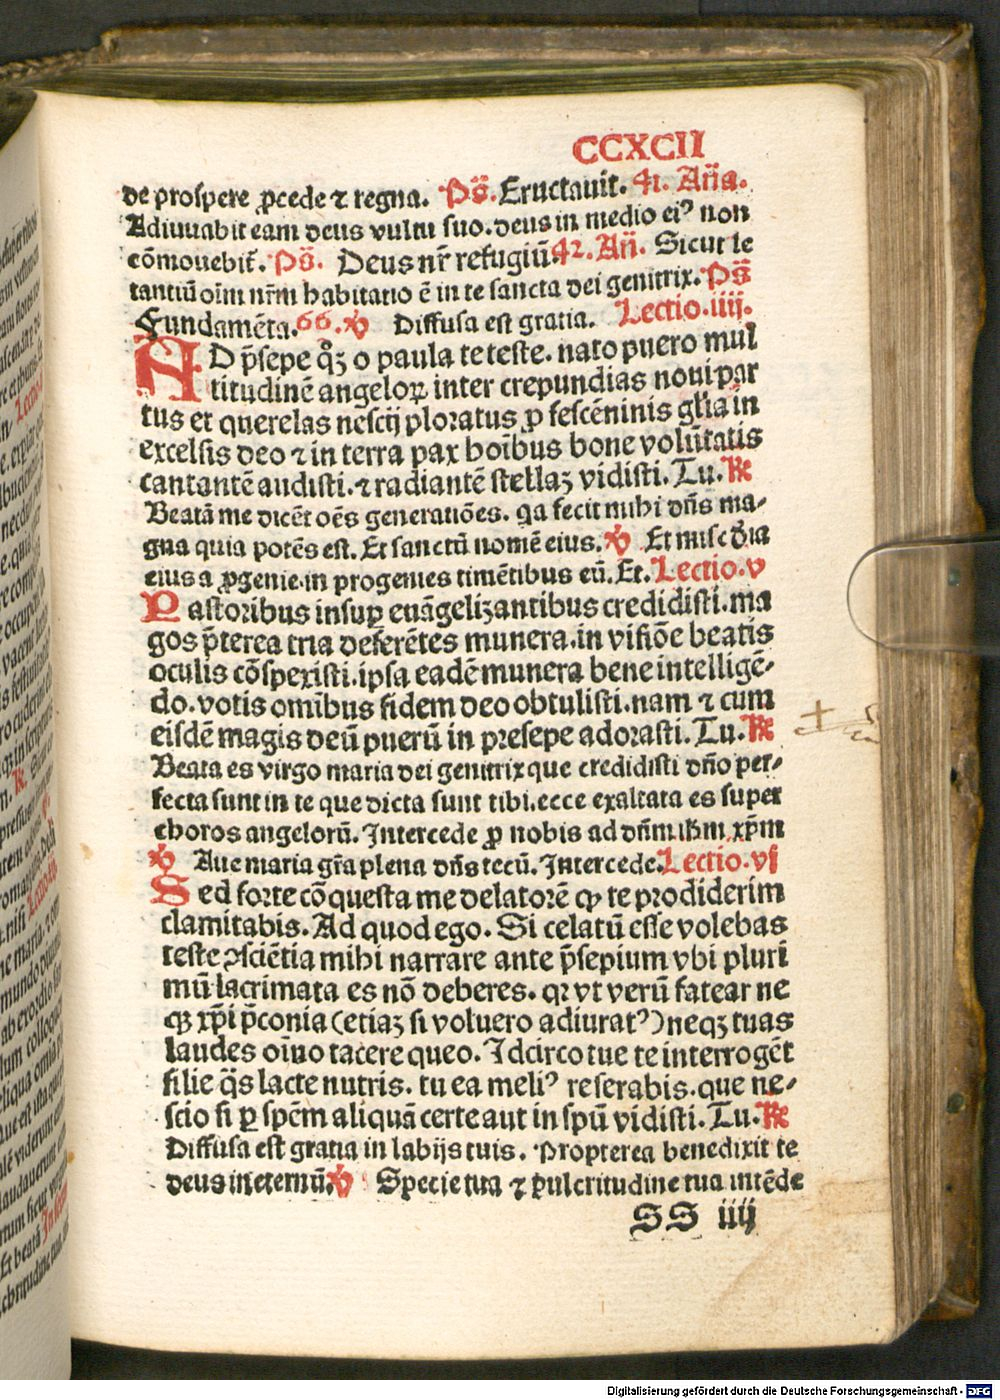 CCXCII
de prospere ꝓcede ⁊ regna. Ps̄. Eructauit. 41. Aña.
Adiuuabit eam deus vultu suo. deus in medio eiꝰ non
cōmouebit̄. Ps̄. Deus nr̄ refugiū. 42. Añ. Sicut le
tantiū oīm nr̄m habitatio ē in te sancta dei genitrix. Ps̄
Fundamēta. 66. ℣ Diffusa est gratia. Lectio. iiij.
AD p̄sepe qͦꝫ o paula te teste. nato puero mul
titudinē angeloꝝ inter crepundias noui par
tus et querelas nescij ploratus ꝓ fescēninis gl̄ia in
excelsis deo ⁊ in terra pax hoībus bone volūtatis
cantantē audisti. ⁊ radiantē stellaꝫ vidisti. Tu. ℟
Beatā me dicēt oēs generatiōes. qa fecit mihi dn̄s ma-
gna quia potēs est. Et sanctū nomē eius. ℣ Et misc̄dia
eius a ꝓgenie in progenies timētibus eū. Et. Lectio. v
Pastoribus insuꝑ euāgelizantibus credidisti. ma
gos p̄terea tria deferētes munera. in visiōe beatis
oculis cōspexisti. ipsa eadē munera bene intelligē-
do. votis omībus fidem deo obtulisti. nam ⁊ cum
eisdē magis deū puerū in presepe adorasti. Tu. ℟
Beata es virgo maria dei genitrix que credidisti dn̄o per-
fecta sunt in te que dicta sunt tibi. ecce exaltata es super
choros angelorū. Intercede ꝓ nobis ad dn̄m ihm̄ xp̄m
℣ Aue maria gr̄a plena dn̄s tecū. Intercede. Lectio. vj
Sed forte cōquesta me delatorē ꝙ te prodiderim
clamitabis. Ad quod ego. Si celatū esse volebas
teste ↄsciētia mihi narrare ante p̄sepium vbi pluri
mū lacrimata es nō deberes. qꝛ vt verū fatear ne
qꝫ xp̄i p̄conia (etiaꝫ si voluero adiuratꝰ) neqꝫ tuas
laudes oīno tacere queo. Idcirco tue te interrogēt
filie q̄s lacte nutris. tu ea meliꝰ reserabis. que ne-
scio si ꝑ spēm aliquā certe aut in spū vidisti. Tu. ℟
Diffusa est gratia in labijs tuis. Propterea benedixit te
deus in eternū. ℣ Specie tua ⁊ pulcritudine tua intēde
SS iiij
Digitalisierung gefördert durch die Deutsche Forschungsgemeinschaft - DFG